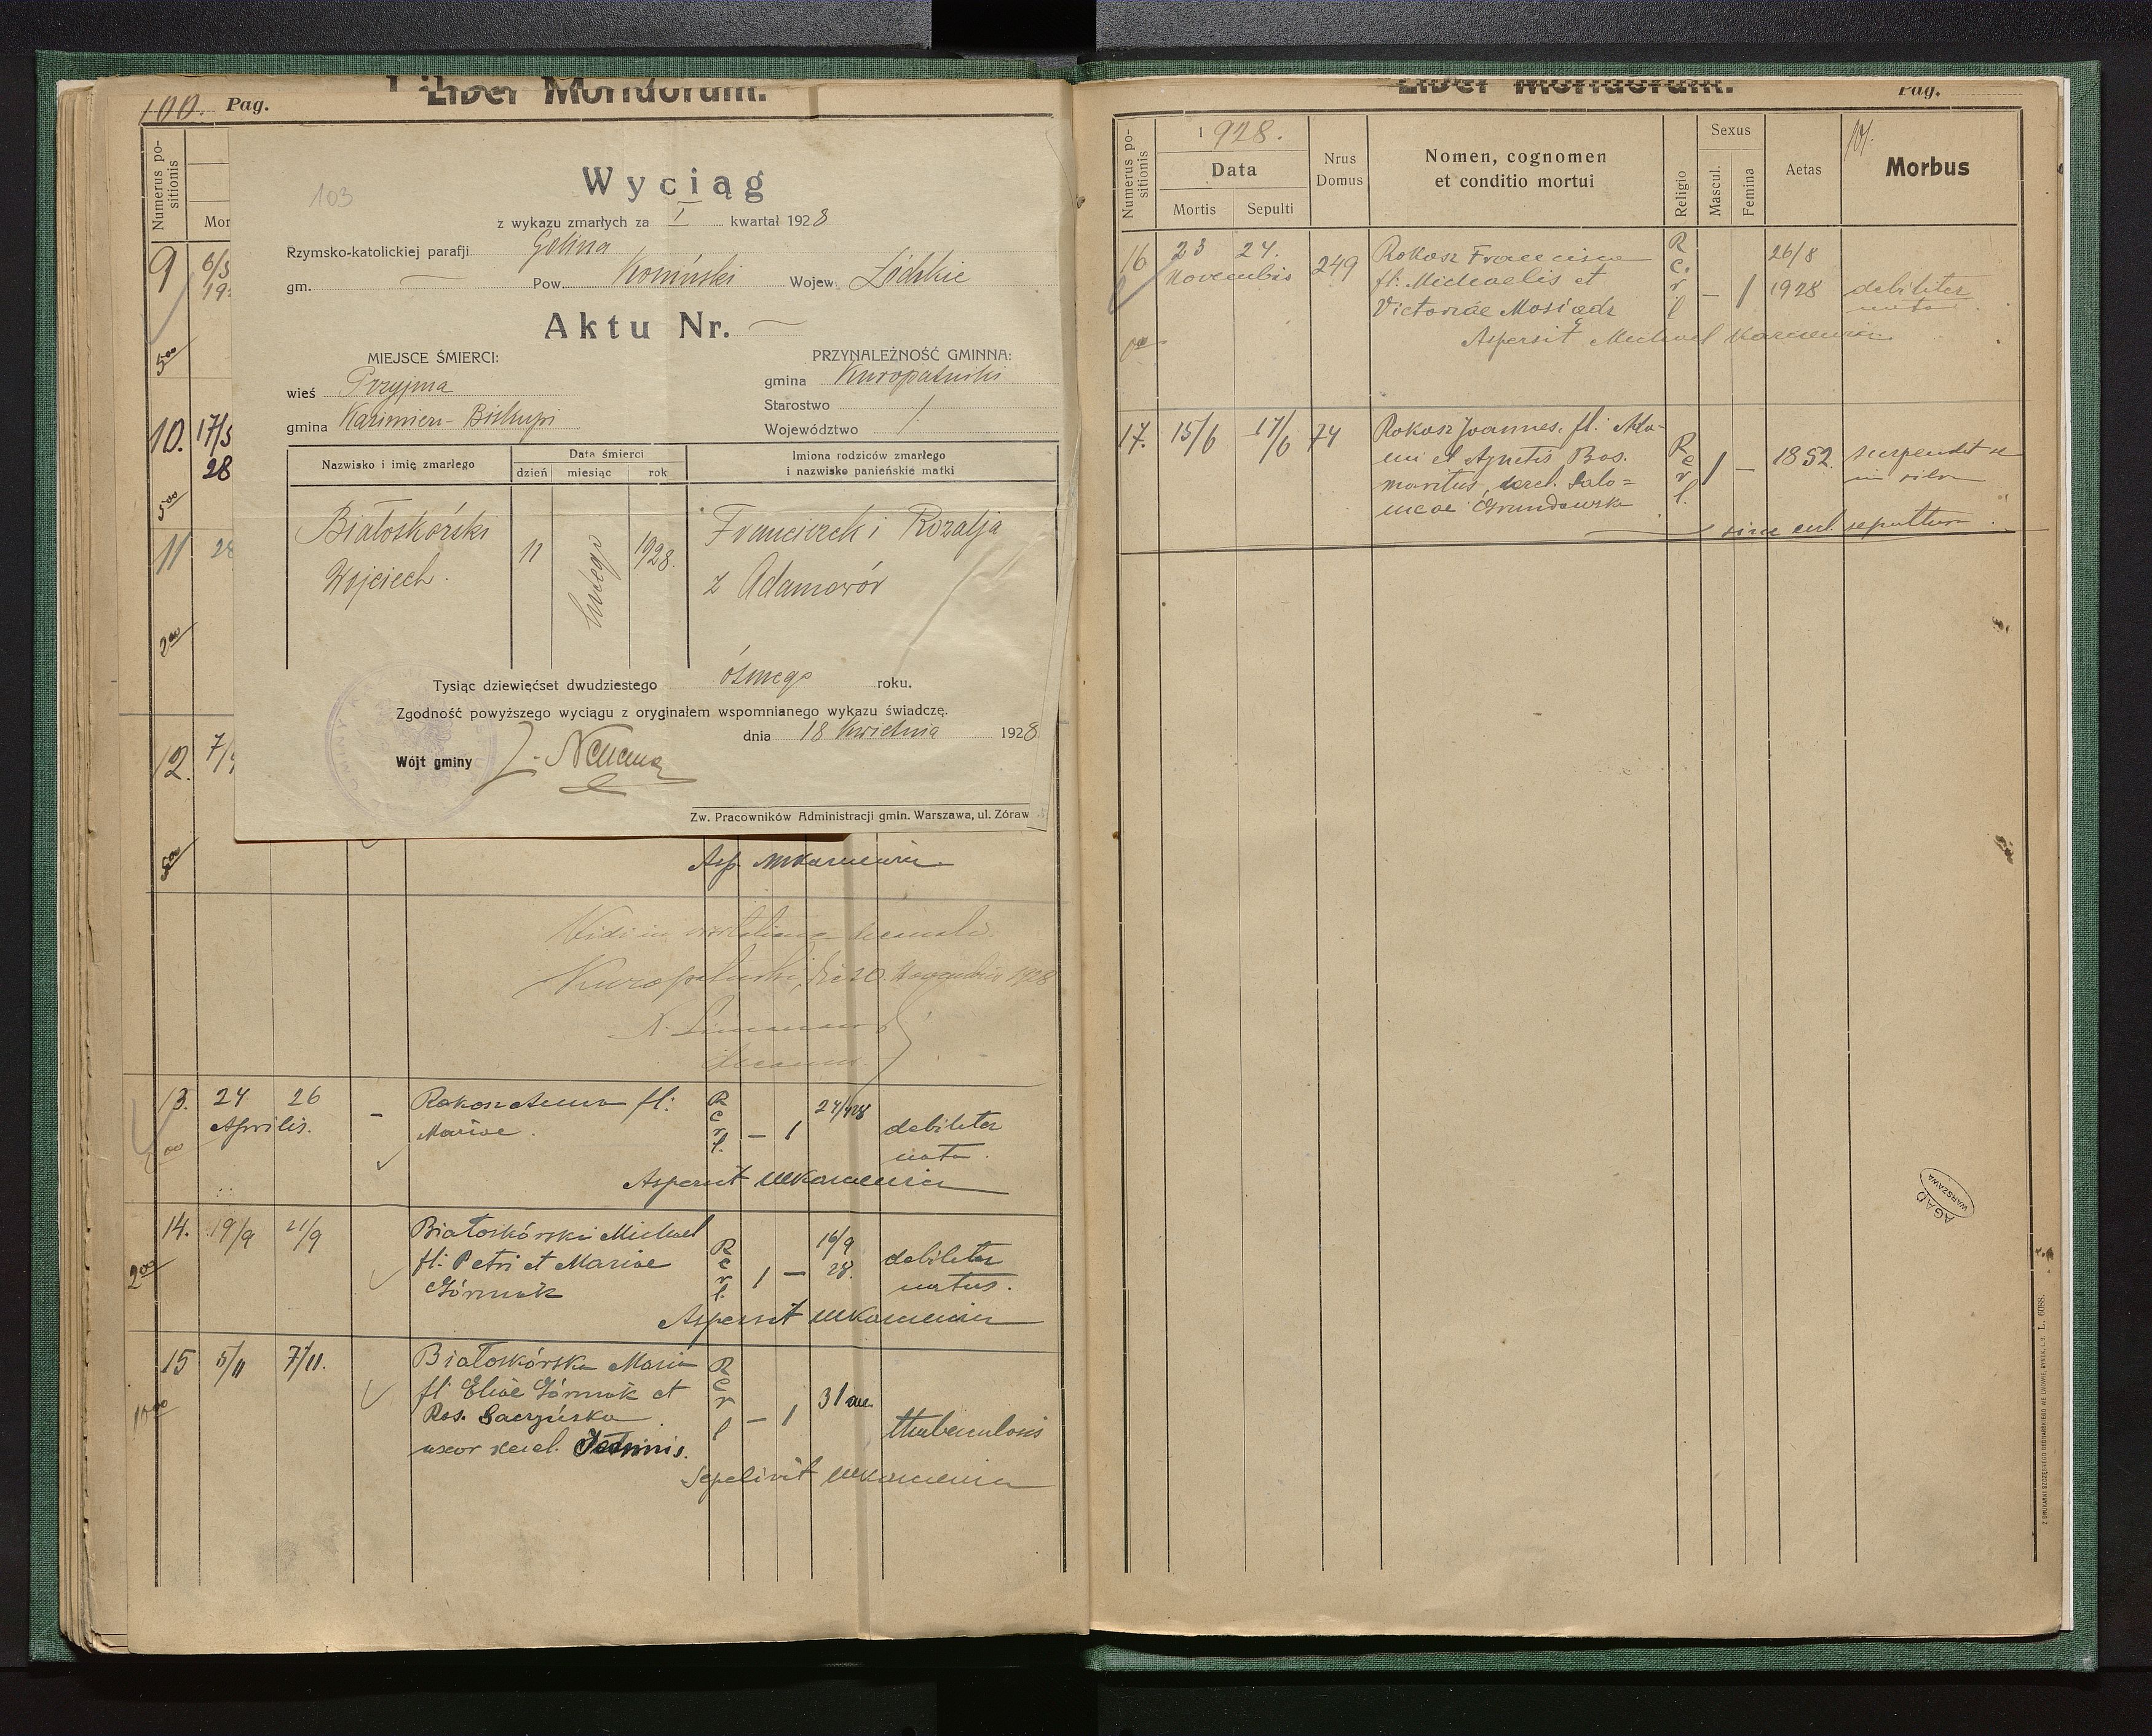 100. Pag.
Liber Mortuorum.
Numerus positionis
Mor
9
6/3
19
500
10.
17/3
28
500
11
28
200
12.
7/
500
103
Wyciąg
z wykazu zmarłych za I kwartał 1928
Rzymsko-katolickiej parafji Golina
gm. Pow. Koniński Wojew. Łódzkie
Aktu Nr.
MIEJSCE ŚMIERCI:
wieś Przyjma
gmina Kazimierz-Biskupi
PRZYNALEŻNOŚĆ GMINNA:
gmina Kuropatniki
Starostwo
Województwo
Nazwisko i imię zmarłego
Data śmierci
dzień miesiąc rok
Imiona rodziców zmarłego
i nazwisko panieńskie matki
Białoskórski
Wojciech
11
lutego
1928.
Franciszek i Rozalja
z Adamowów
Tysiąc dziewięćset dwudziestego ósmego roku.
Zgodność powyższego wyciągu z oryginałem wspomnianego wykazu świadczę.
dnia 18 Kwietnia 1928
Wójt gminy
Zw. Pracowników Administracji gmin. Warszawa, ul. Zóraw
Asp.
Kuropatniki, die 10. 1928
13. 24 26
Aprilis.
Rokosz Anna fl:
Mariae.
R c r l
– 1
24/4 28
debiliter
nata.
Aspersit
14. 19/9 21/9
Białoskórski Michael
fl: Petri et Mariae
Górniak
R c r l
1 –
16/9
28.
debiliter
natus.
200
Aspersit
15 5/11 7/11.
Białoskórska Maria
fl: Eliae Górniak et
Ros. Baczyńska
uxor
R c r l
– 1
31 an.
thuberculosis
Sepelivit
Liber Mortuorum.
Pag.
Numerus positionis
1928.
Data
Mortis Sepulti
Nrus
Domus
Nomen, cognomen
et conditio mortui
Religio
Sexus
Mascul. Femina
Aetas
Morbus
16
23 24.
Novembris
249
Rokosz Francisca
fl: Michaelis et
Victoriae Mosiądz
R c. r l
– 1
26/8
1928
debiliter
nata
Aspersit Michael
17. 15/6 17/6 74
Rokosz Joannes, fl: Ada-
mi et Agnetis Bos.
maritus, Salo-
meae Grundowska
R c r l.
1 –
1852.
suspendit se
in silva
sine eccl. sepultura.
AGAD
WARSZAWA
Z DRUKARNI SZCZĘSNEGO BEDNARSKIEGO WE LWOWIE, RYNEK L. 9. L. 6088.